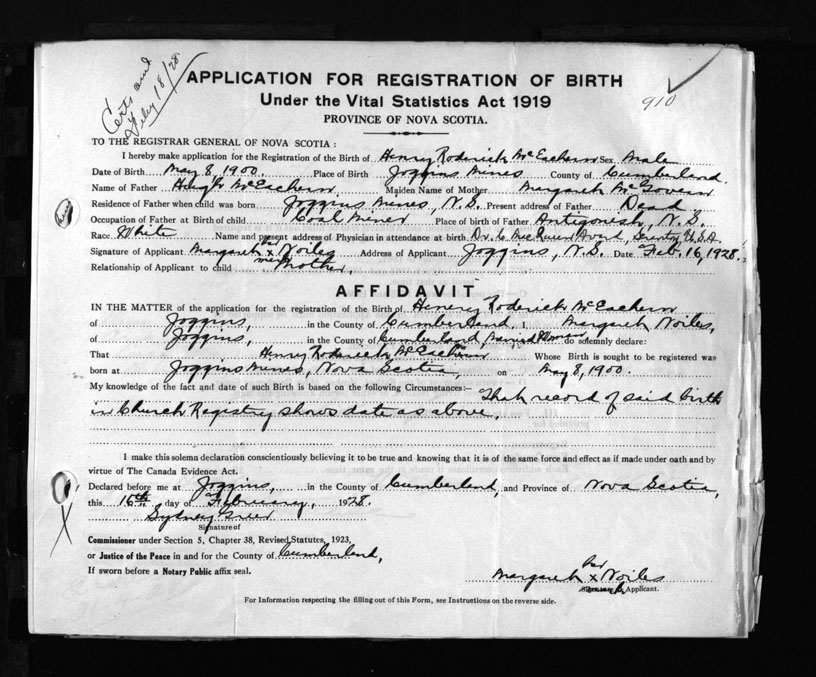 Certs and
July 18/28
910
APPLICATION FOR REGISTRATION OF BIRTH
Under the Vital Statistics Act 1919
PROVINCE OF NOVA SCOTIA.
TO THE REGISTRAR GENERAL OF NOVA SCOTIA:
I hereby make application for the Registration of the Birth of Henry Roderick McEachern Sex Male
Date of Birth May 8, 1900. Place of Birth Joggins Mines County of Cumberland.
Name of Father Hugh McEachern Maiden Name of Mother Margaret McGovern
Residence of Father when child was born Joggins Mines, N.S. Present address of Father Dead
Occupation of Father at Birth of child Coal Miner Place of birth of Father Antigonish, N.S.
Race White Name and present address of Physician in attendance at birth Dr. C. U.S.A.
Signature of Applicant Margaret her x mark Noiles Address of Applicant Joggins, N.S. Date Feb. 16, 1928.
Relationship of Applicant to child Mother.
AFFIDAVIT
IN THE MATTER of the application for the registration of the Birth of Henery Roderick McEachern
of Joggins, in the County of Cumberland, I, Margaret Noiles,
of Joggins, in the County of Cumberland, Married Woman do solemnly declare:
That Henry Roderick McEachern Whose Birth is sought to be registered was
born at Joggins Mines, Nova Scotia, on May 8, 1900.
My knowledge of the fact and date of such Birth is based on the following Circumstances:- That record of said birth
in Church Registry shows date as above.
I make this solemn declaration conscientiously believing it to be true and knowing that it is of the same force and effect as if made under oath and by
virtue of The Canada Evidence Act.
Declared before me at Joggins, in the County of Cumberland, and Province of Nova Scotia,
this 16th day of February, 1928.
Sydney Greer
Signature of
Commissioner under Section 5, Chapter 38, Revised Statutes, 1923,
or Justice of the Peace in and for the County of Cumberland,
If sworn before a Notary Public affix seal.
her
Margaret x Noiles
Applicant.
For Information respecting the filling out of this Form, see Instructions on the reverse side.